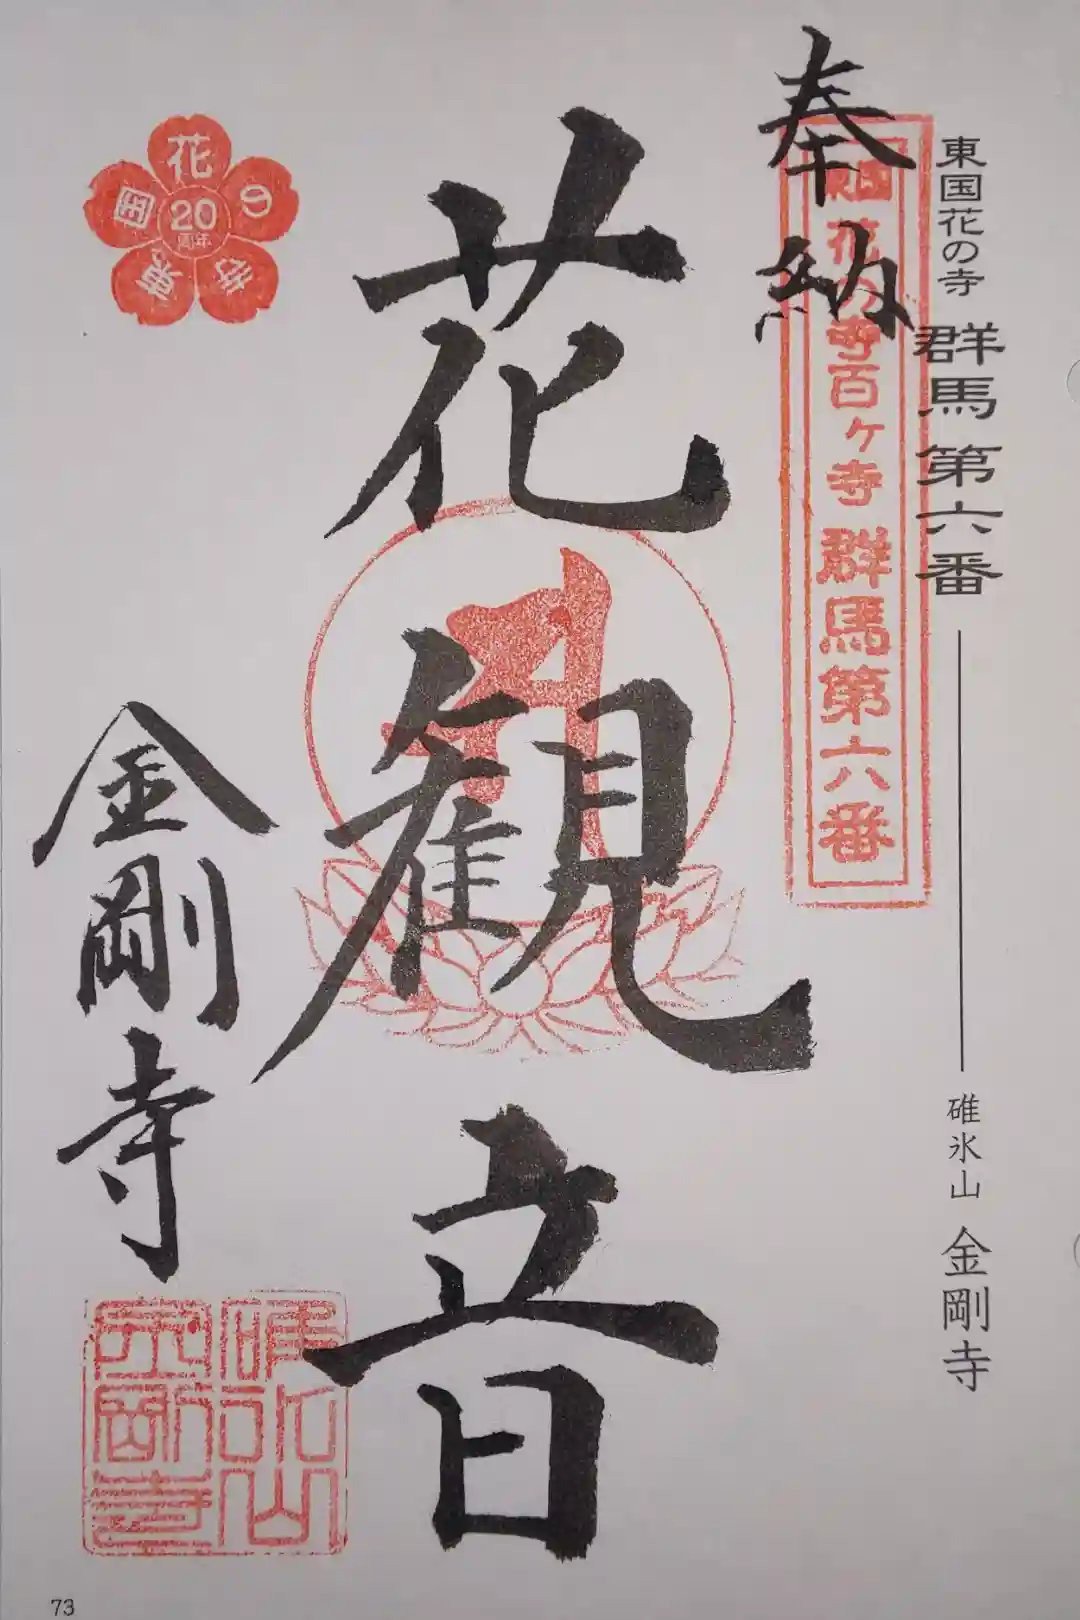 東国花の寺 群馬第六番 碓氷山 金剛寺
奉納
東国花の寺百ヶ寺 群馬第六番
花観音
金剛寺
東国花の寺
20
周年
碓氷山
金剛寺
73